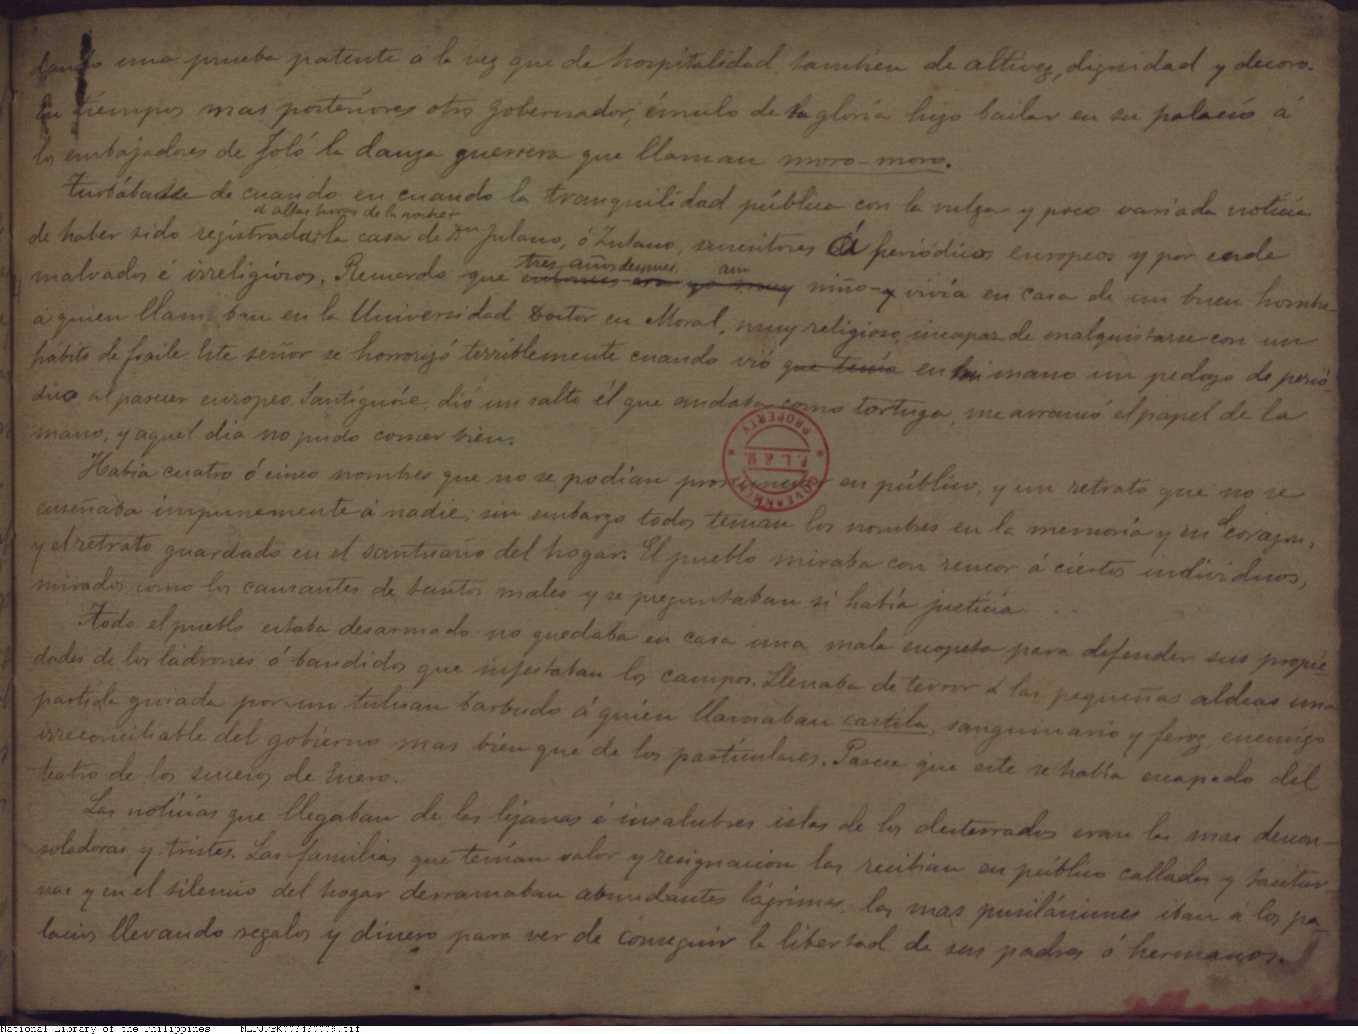 dando una prueba patente á la vez que de hospitalidad tambien de altivez, dignidad y decoro.
En tiempos mas posteriores otro gobernador, émulo de la gloria hizo bailar en su palacio á
los embajadores de Joló la danza guerrera que llaman moro-moro.
Turbábase de cuando en cuando la tranquilidad pública con la vulgar y poco variada noticia
á altas horas de la noche
de haber sido registrada la casa de Dn Fulano, ó Zutano, suscritores á periódicos europeos y por ende
tres años despues aun
malvados é irreligiosos. Recuerdo que entonces era yo muy niño y vivía en casa de un buen hombre
á quien llamaban en la Universidad Doctor en Moral, muy religioso, incapaz de malquistarse con un
hábito de fraile. Este señor se horrorizó terriblemente cuando vió que tenía en mi mano un pedazo de perió-
dico al parecer europeo. Santiguóse, dió un salto él que andaba como tortuga, me arrancó el papel de la
mano, y aquel dia no pudo comer bien.
Había cuatro ó cinco nombres que no se podían pronunciar en público, y un retrato que no se
enseñaba impunemente á nadie; sin embargo todos tenian los nombres en la memoria y en corazon,
y el retrato guardado en el santuario del hogar. El pueblo miraba con rencor á ciertos individuos,
mirados como los causantes de tantos males y se preguntaban si había justicia . . .
Todo el pueblo estaba desarmado no quedaba en casa una mala escopeta para defender sus propie
dades de los ladrones ó bandidos que infestaban los campos. Llenaba de terror á las pequeñas aldeas una
partida guiada por un tulisan barbudo á quien llamaban castila, sanguinario y feroz, enemigo
irreconciliable del gobierno mas bien que de los particulares. Parece que este se había escapado del
teatro de los sucesos de Enero.
Las noticias que llegaban de las lejanas é insalubres islas de los desterrados eran las mas descon-
soladoras y tristes. Las familias que tenían valor y resignacion las recibian en público callados y tacitur-
nas y en el silencio del hogar derramaban abundantes lágrimas, las mas pusilánimes iban á los pa-
lacios llevando regalos y dinero para ver de conseguir la libertad de sus padres ó hermanos.
GOVERNMENT
P. L. & M.
PROPERTY
National Library of the Philippines